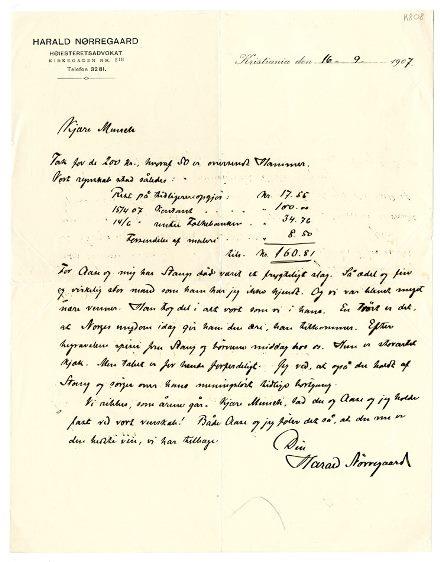 K808
HARALD NØRREGAARD
HØIESTERETSADVOKAT
KIRKEGADEN NR.
Telefon 3281.
Kristiania den 16 - 9 - 1907
Kjære Munch
Tak for de 200 Kr., hvoraf 50 er oversendt Hammer.
Vort regnskab står således:
Rest på tidligere opgjør: Kr. 17.55
15/4 07 Kontant " 100.00
14/6 " Folkebanken " 34.76
Forsendelse af maleri " 8.50
tils. Kr. 160.81
For Aase og mig har Stangs død været et frygteligt slag. Så ædel og fin
og virkelig stor mand som ham har jeg ikke kjendt. Og vi var blevet meget
nære venner. Han tog del i alt vort som vi i hans. En trøst er det,
at Norges ungdom idag gir ham den ære, han tilkommer. Efter
begravelsen spiser fru Stang og børnene middag hos os. Hun er storartet
kjæk. Men tabet er for hende forfærdeligt. Jeg ved, at også du holdt af
Stang og sørger over hans meningsløst tidlige bortgang.
Vi rikkes, som årene går. Kjære Munch, lad du og Aase og jeg holde
fast ved vort venskab! Både Aase og jeg føler det så, at du nu er
den bedste ven, vi har tilbage.
Din
Harald Nørregaard